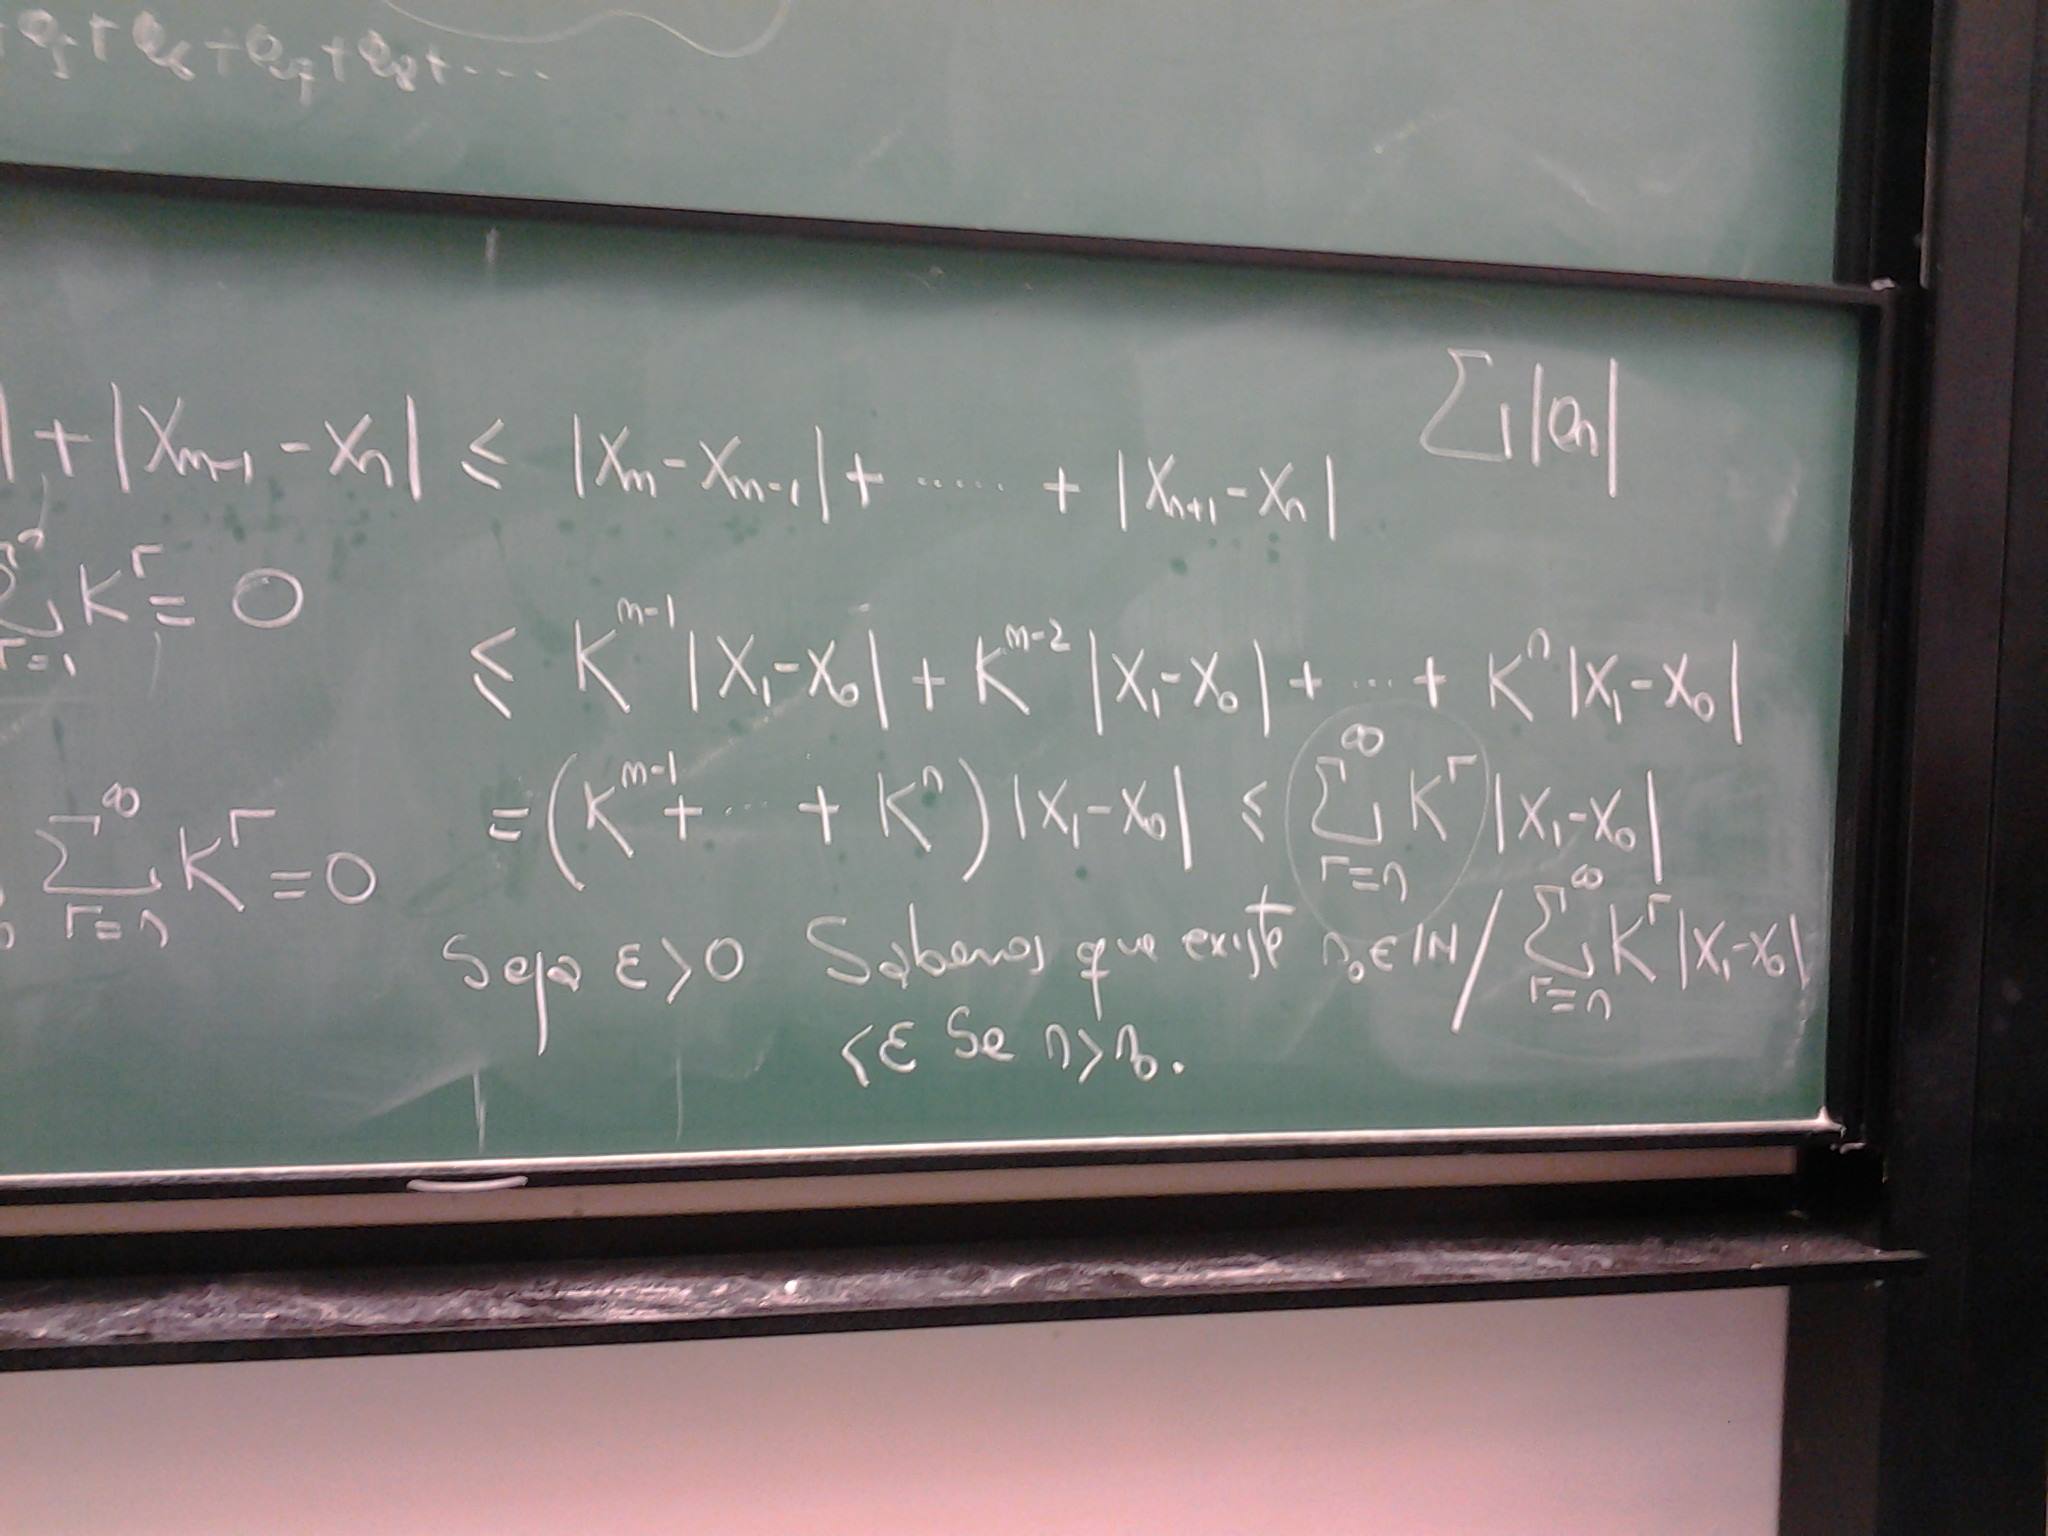 + a₅ + a₆ + a₇ + a₈ + ....
Σ|aₙ|
| + |Xₘ₋₁ - Xₙ| ≤ |Xₘ - Xₘ₋₁| + ..... + |Xₙ₊₁ - Xₙ|
Σ_{r=1}^{n} K^r = 0
≤ K^{m-1} |X₁-X₀| + K^{m-2} |X₁-X₀| + ... + K^n |X₁-X₀|
= (K^{m-1} + ... + K^n) |X₁-X₀| ≤ Σ_{r=n}^{∞} K^r |X₁-X₀|
Σ_{r=n}^{∞} K^r = 0
Seja ε>0 Sabemos que existe n₀ ∈ ℕ / Σ_{r=n}^{∞} K^r |X₁-X₀|
<ε Se n>n₀.